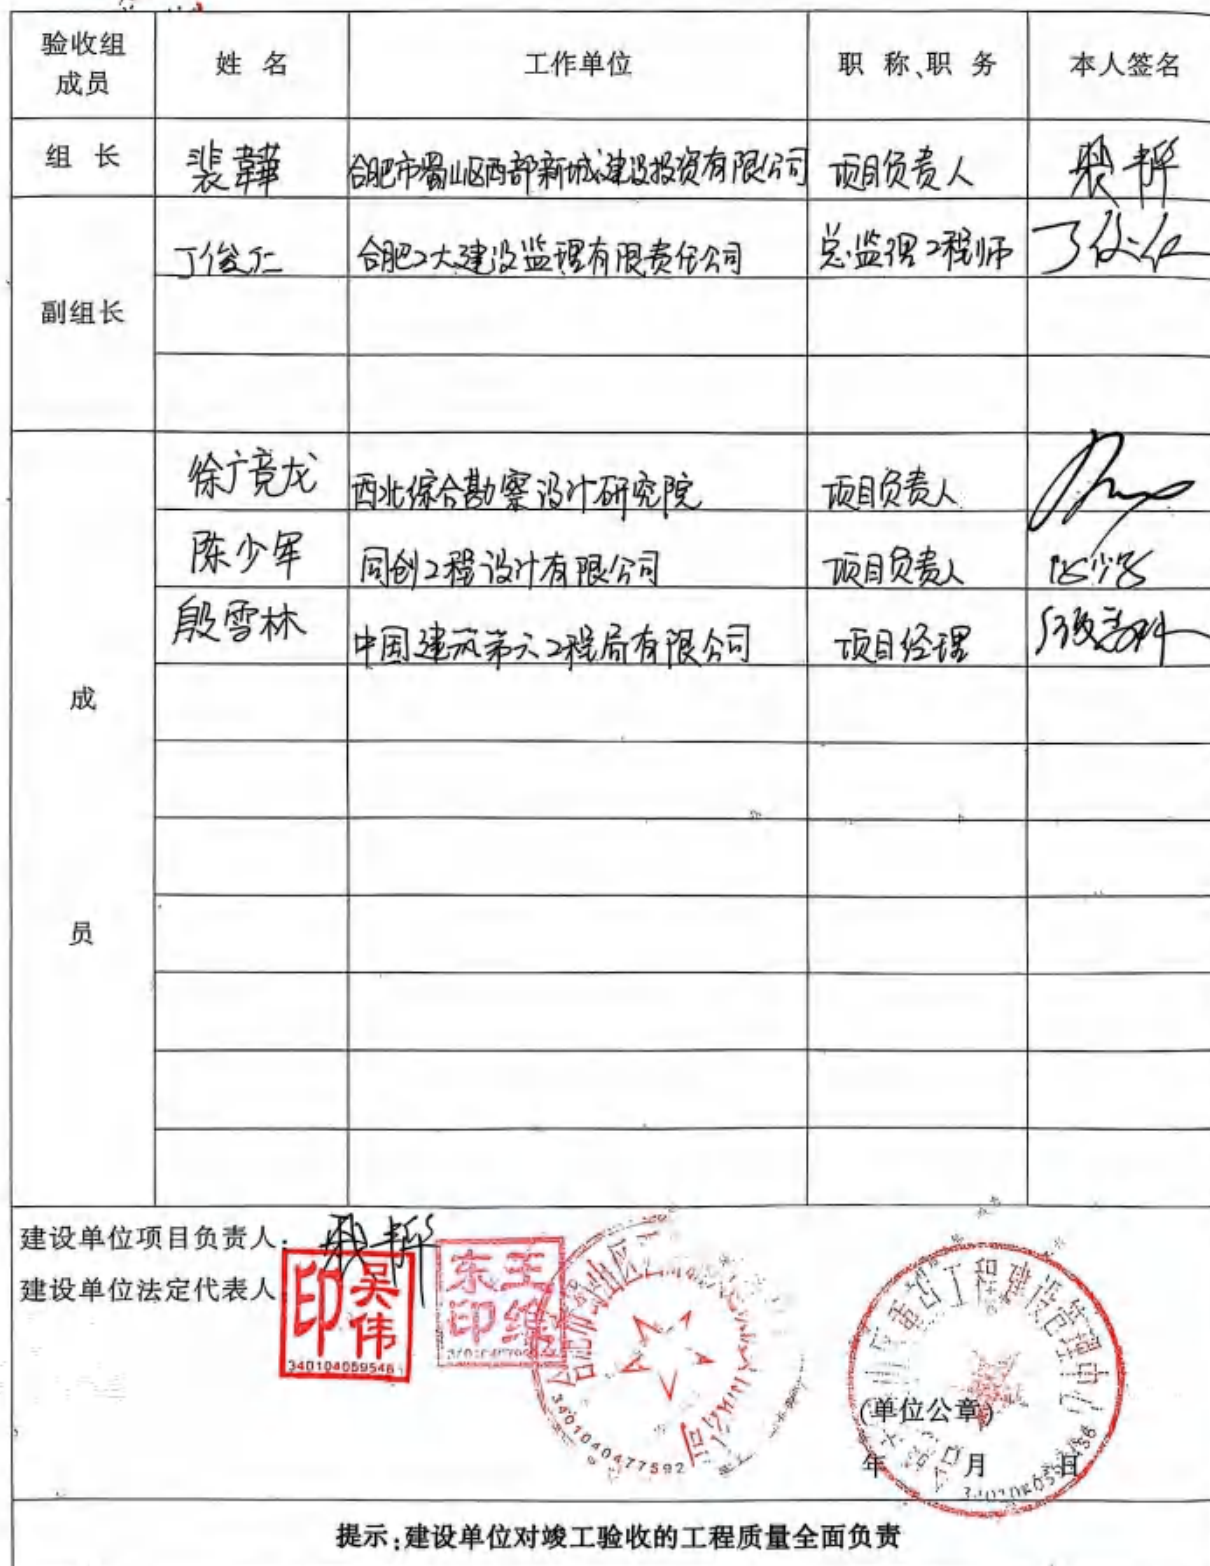 验收组成员 姓 名 工作单位 职 称、职 务 本人签名
组 长 裴韡 合肥市蜀山区西部新城建设投资有限公司 项目负责人 裴韡
副组长 丁俊仁 合肥工大建设监理有限责任公司 总监理工程师 丁俊仁
徐广竟龙 西北综合勘察设计研究院 项目负责人
陈少军 同创工程设计有限公司 项目负责人 陈少军
殷雪林 中国建筑第六工程局有限公司 项目经理 殷雪林
成
员
建设单位项目负责人: 裴韡
建设单位法定代表人
吴伟印
340104059548
王维东印
3401040477592
重点工程建设管理中心
(单位公章)
年 月 日
提示:建设单位对竣工验收的工程质量全面负责